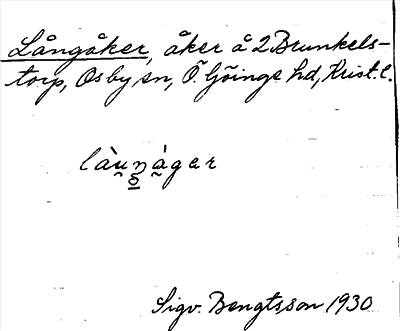 Långåker, åker å 2 Brunkels-
torp, Osby sn, Ö. Göinge hd, Krist. l.
làu̯ŋá̯ger
Sigv. Bengtsson 1930